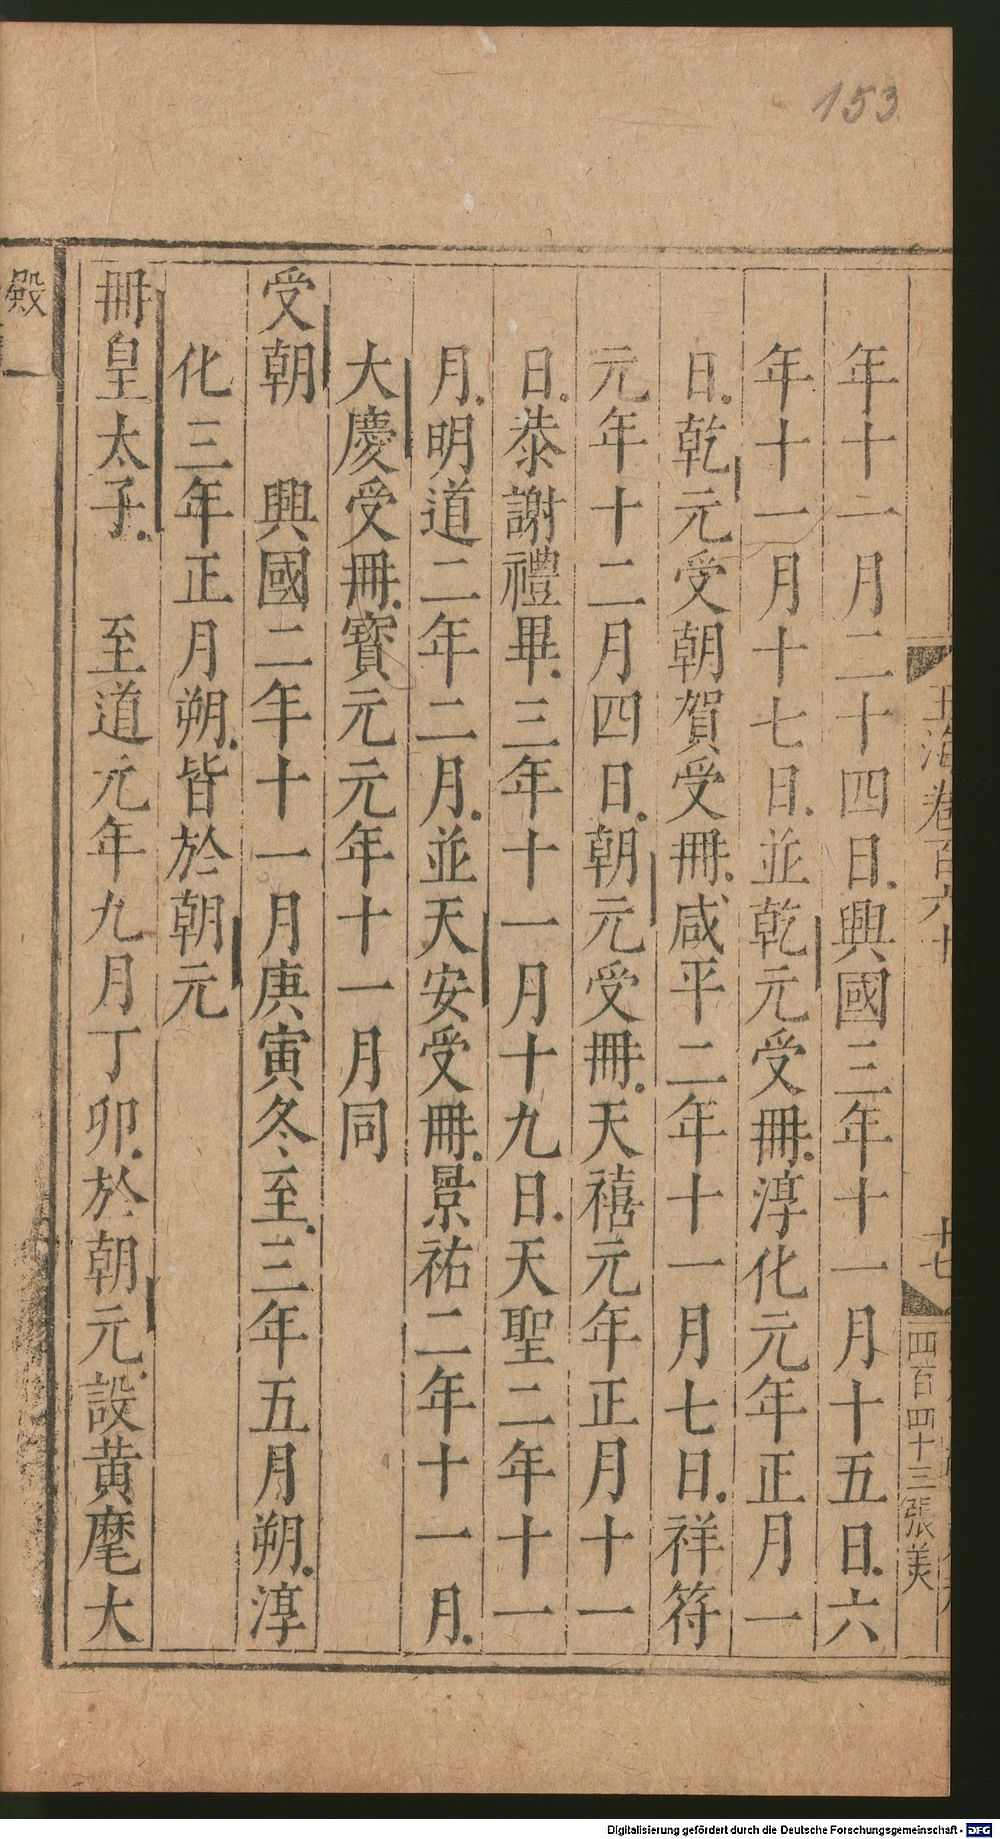 153
玉海卷百六十
十七
四百四十三張美
年十一月二十四日興國三年十一月十五日六
年十一月十七日並乾元受冊淳化元年正月一
日乾元受朝賀受冊咸平二年十一月七日祥符
元年十二月四日朝元受冊天禧元年正月十一
日恭謝禮畢三年十一月十九日天聖二年十一
月明道二年二月並天安受冊景祐二年十一月
大慶受冊寶元元年十一月同
受朝 興國二年十一月庚寅冬至三年五月朔淳
化三年正月朔皆於朝元
冊皇太子 至道元年九月丁卯於朝元設黄麾大
殿一
Digitalisierung gefördert durch die Deutsche Forschungsgemeinschaft - DFG